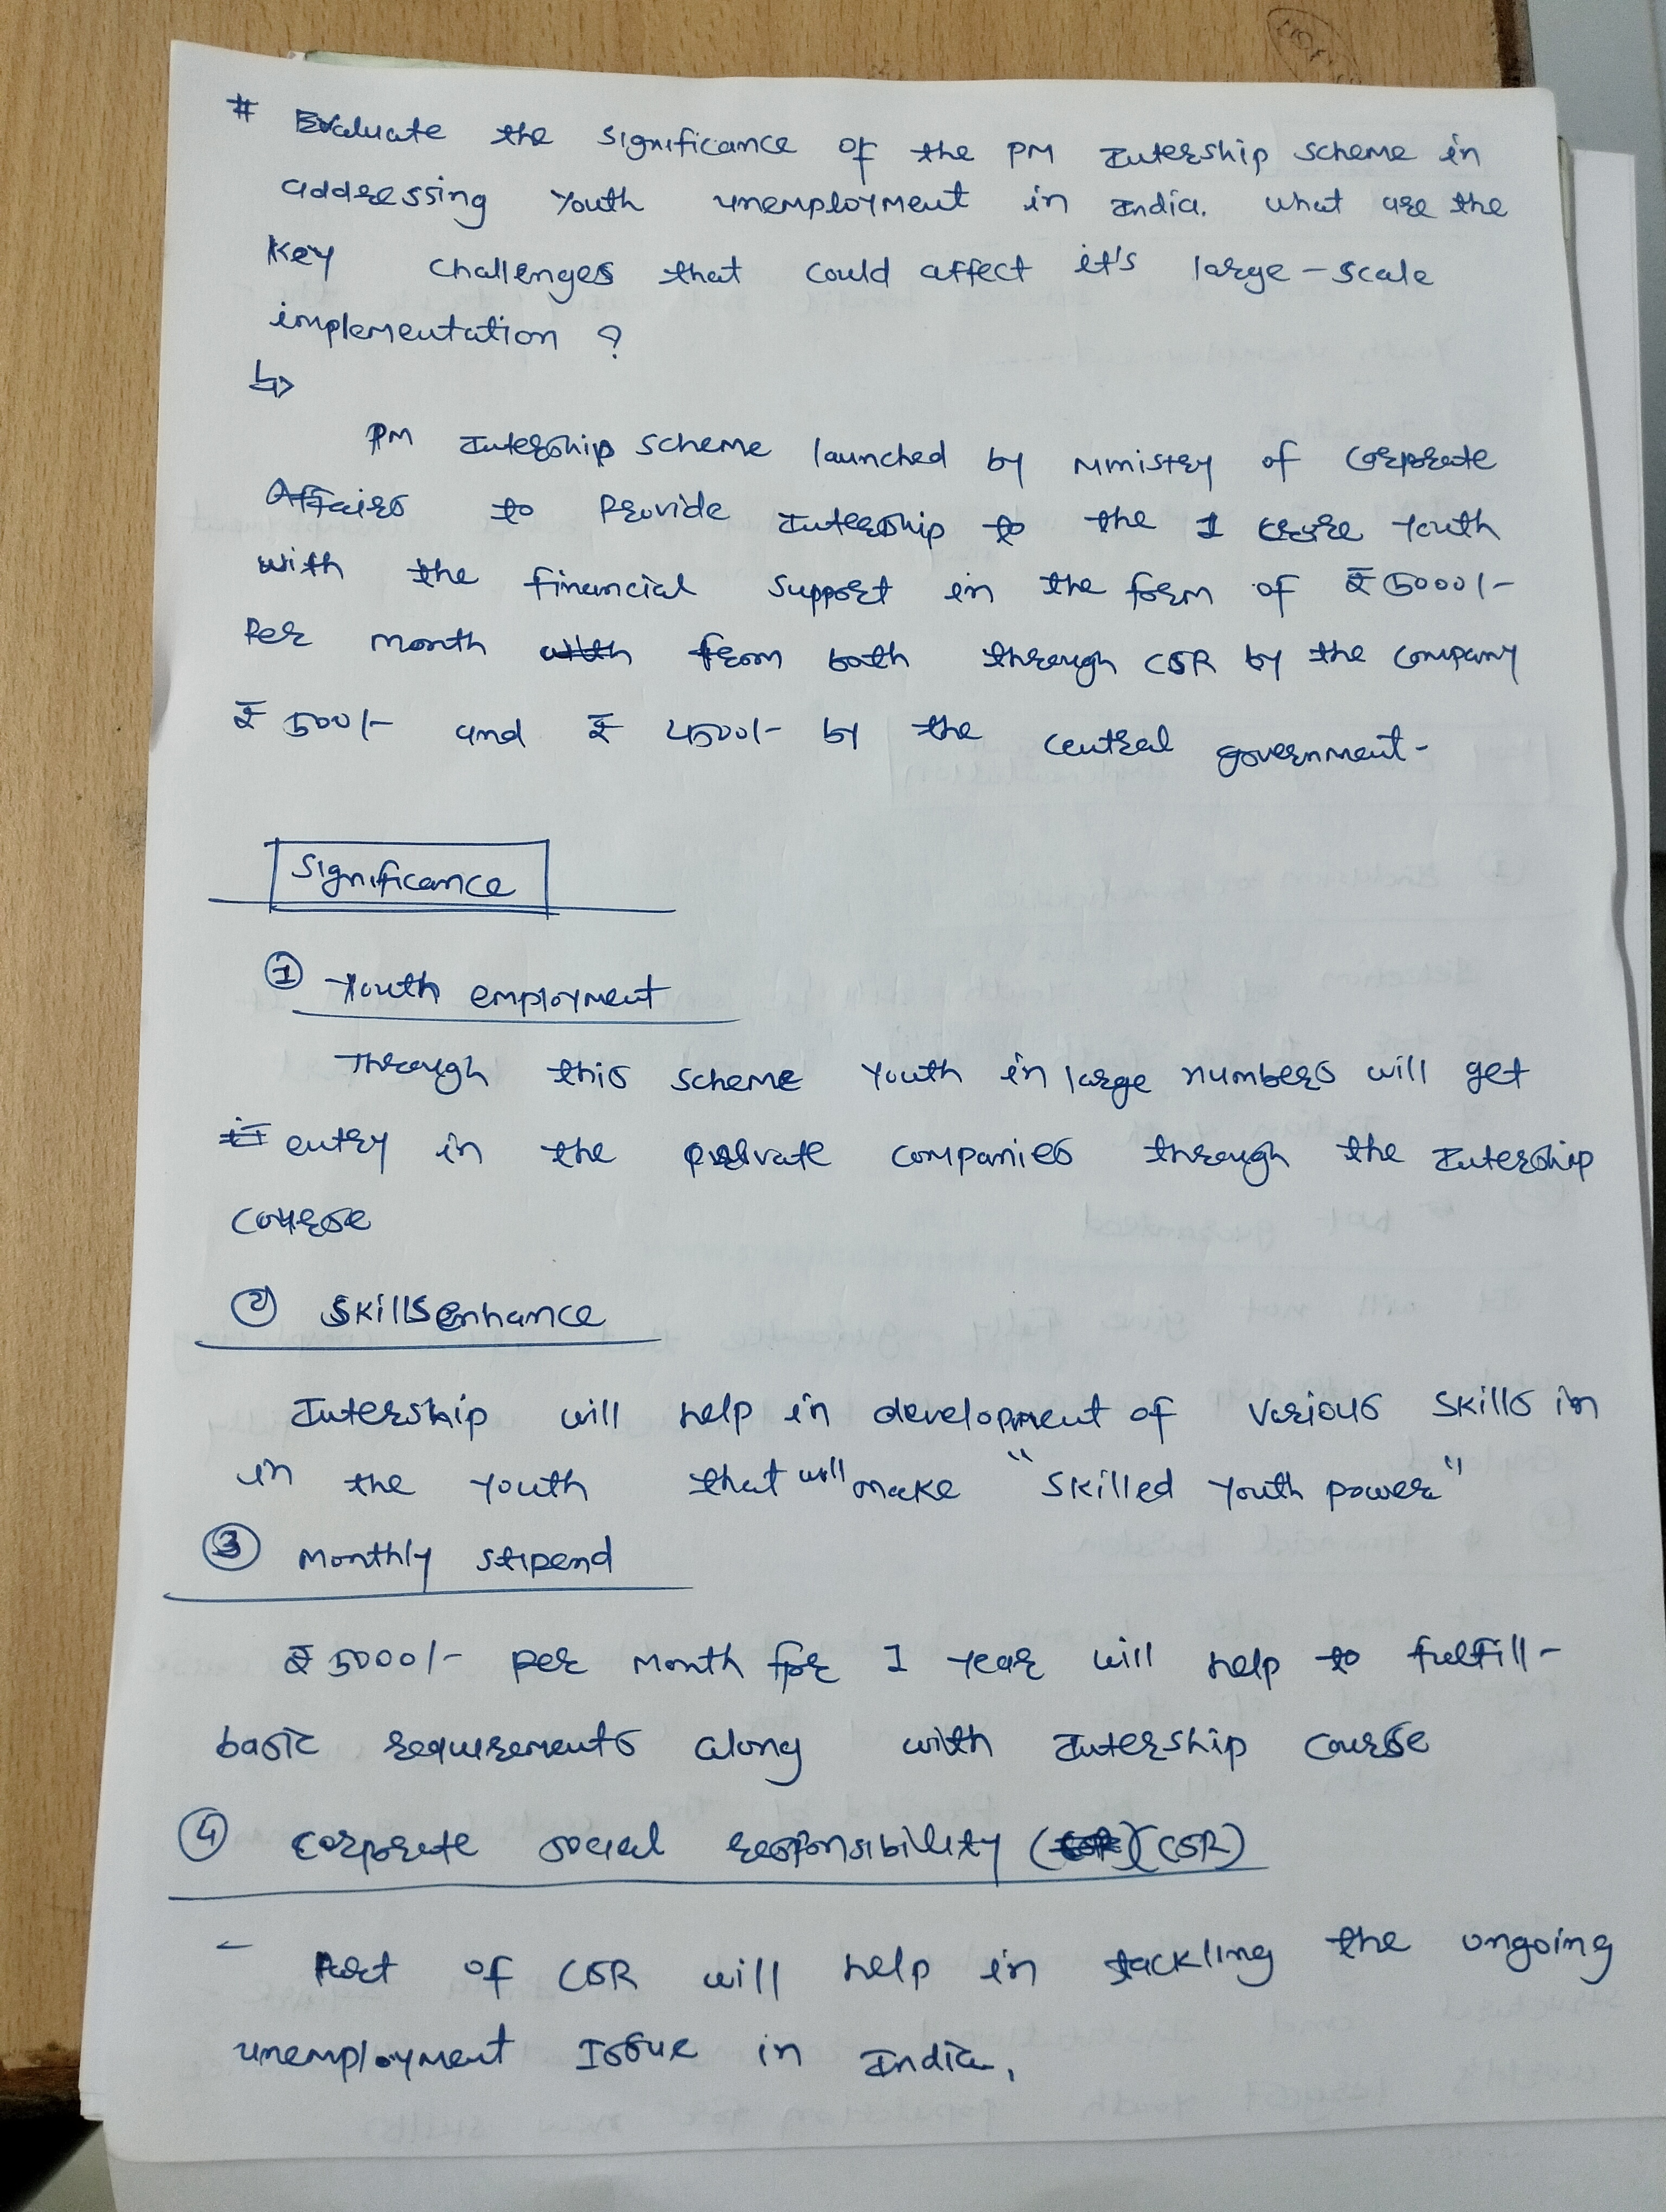 # Evaluate the significance of the PM Intership scheme in
addressing Youth unemployment in India. What are the
Key challenges that could affect it's large-scale
implementation ?
↳
PM Intership scheme launched by Ministry of Corporate
Affairs to Provide Intership to the 1 crore Youth
with the financial support in the form of ₹5000/-
Per month from both through CSR by the company
₹ 500/- and ₹ 4500/- by the central government-
Significance
① Youth employment
Through this scheme Youth in large numbers will get
entry in the private companies through the Intership
course
② Skills enhance
Intership will help in development of various skills in
in the Youth that will make "Skilled Youth power"
③ Monthly stipend
₹ 5000/- per month for 1 year will help to fulfill-
basic requirements along with Intership course
④ Corporate social responsibility (CSR)
- Part of CSR will help in tackling the ongoing
unemployment Issue in India.